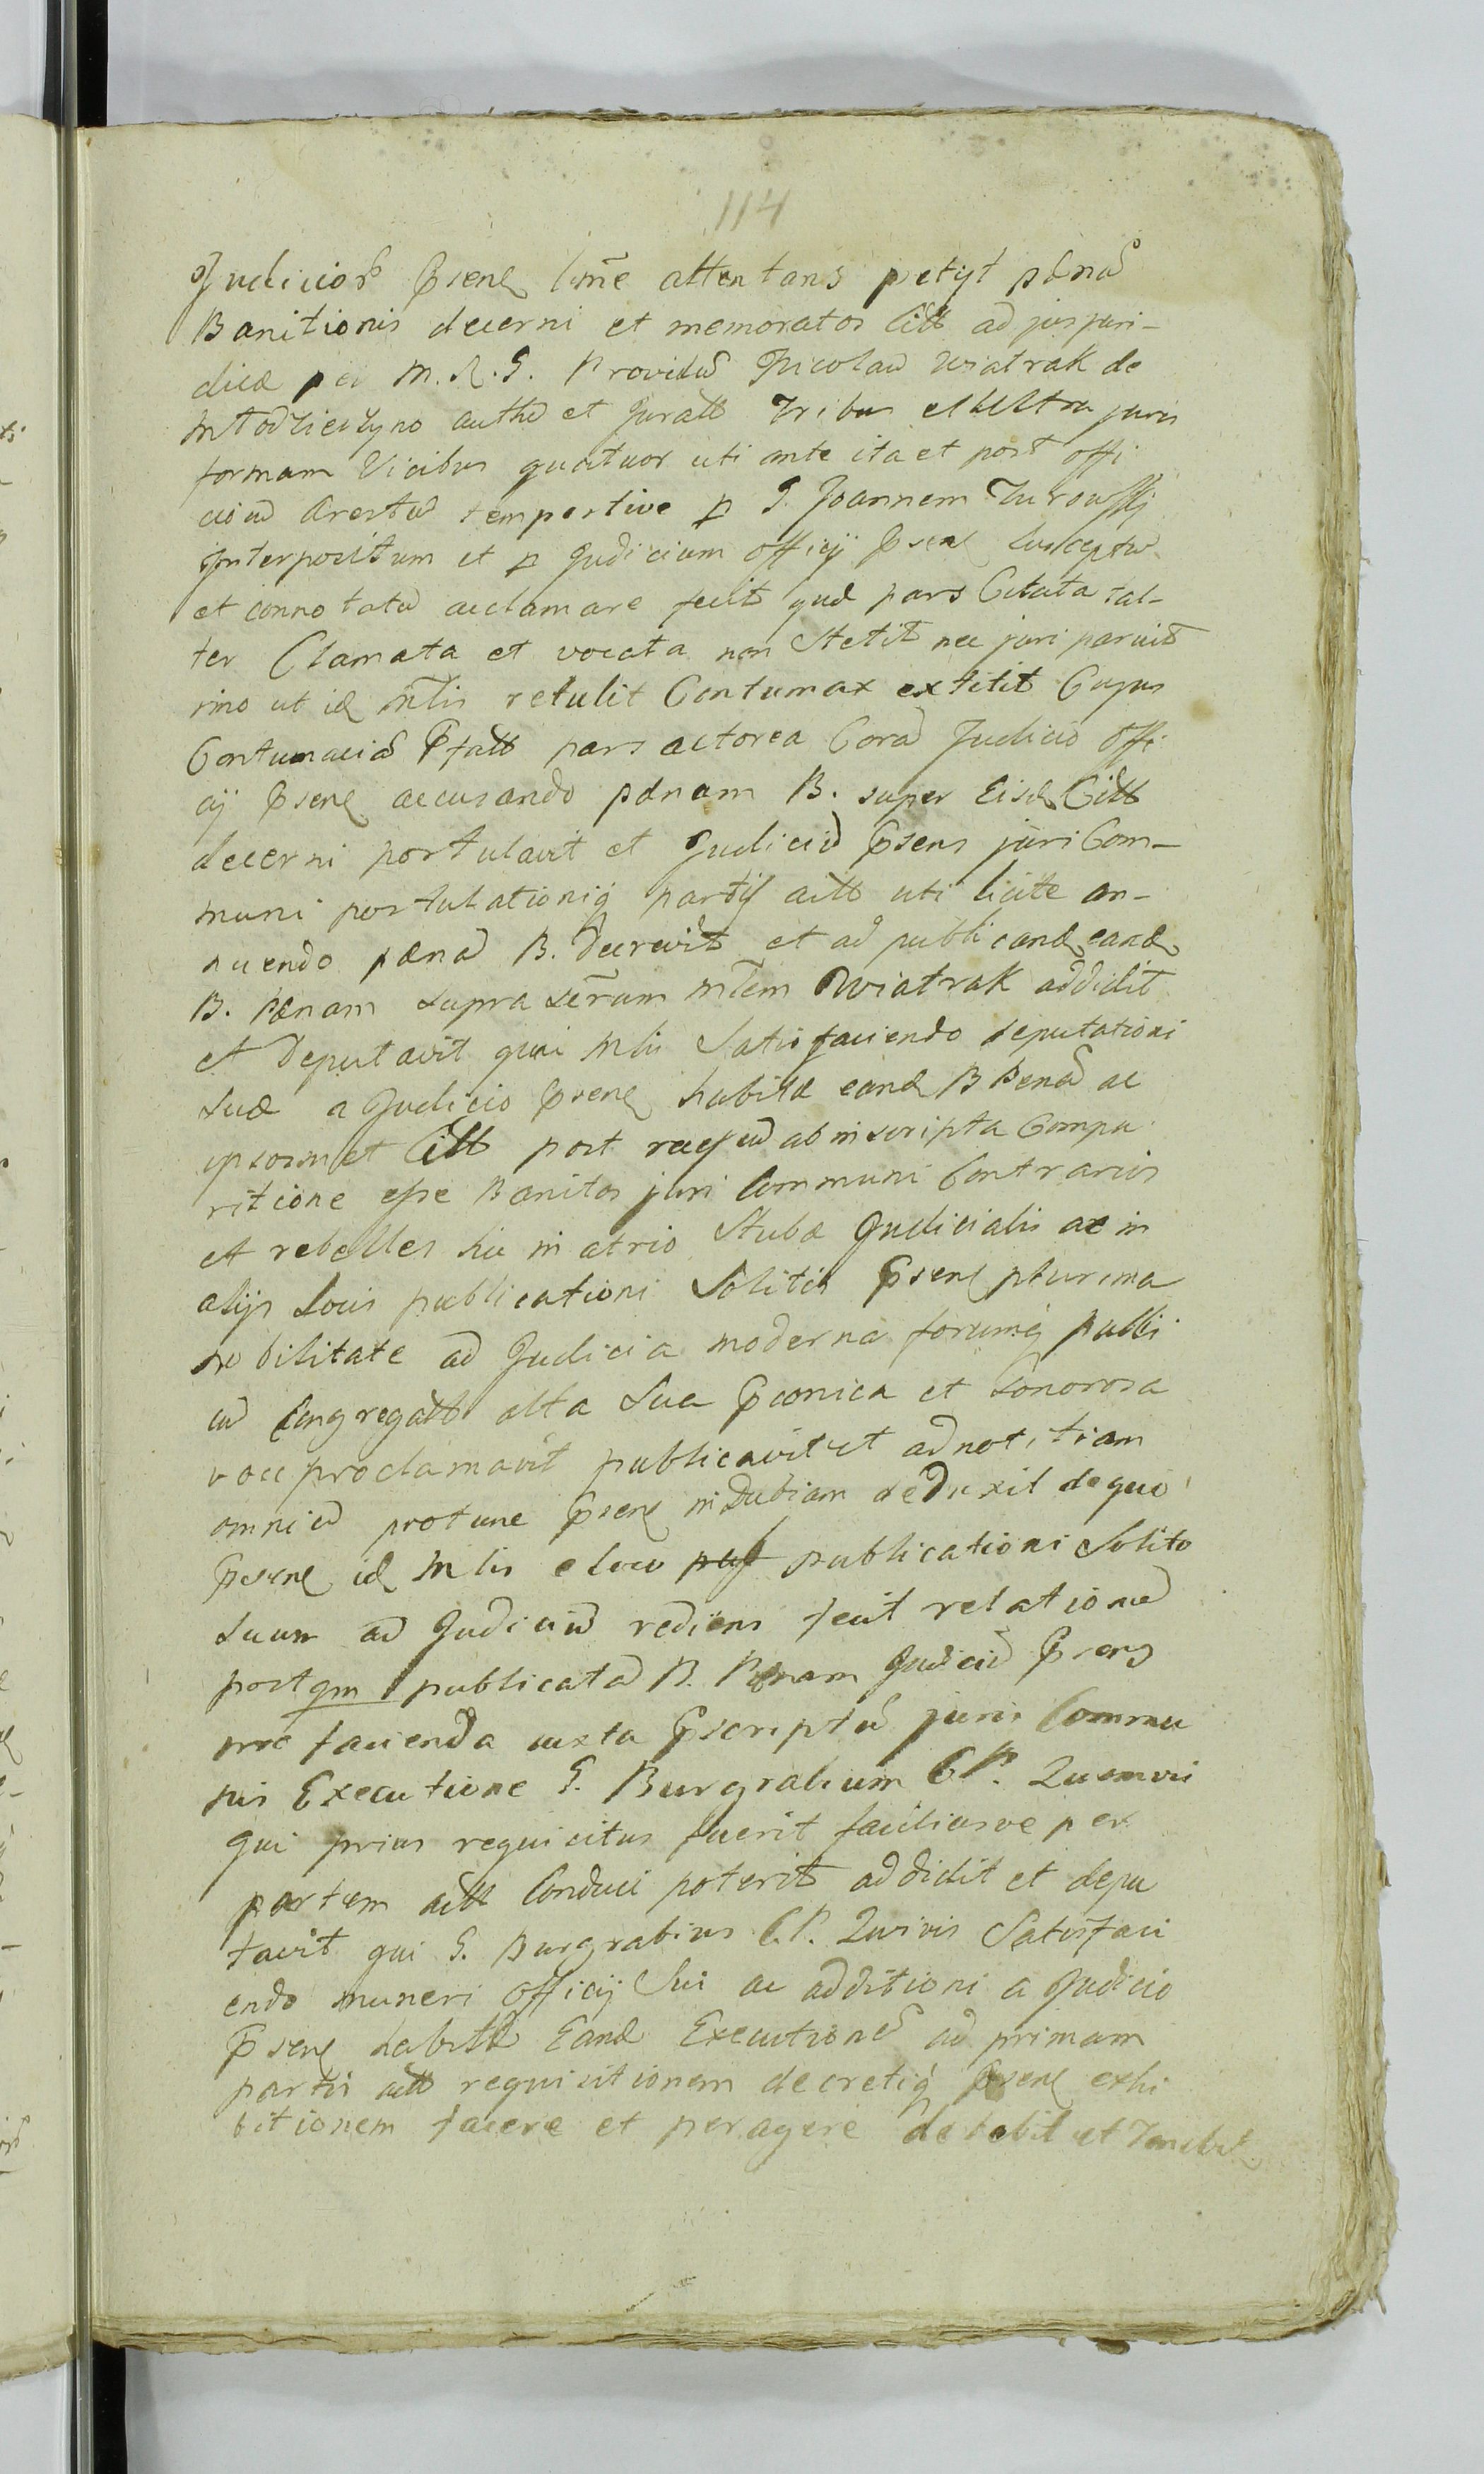 114
Judicior Psens attentans petyt pænā
Banitionis decerni et memoratos Citt ad juspari-
dicæ per M. R. G. Providū Nicolaū Wiatrak de
auth et Juratt Tribus et Ultra juris
formam Vicibus quatuor uti ante ita et post offi
ciou Arestū tempestive p G. Joannem Zurowsky
Interpositum et p Judicium officij Psens susceptū
et connotatū acclamare fecit quæ pars Citata tal-
ter Clamata et vocata non Stetit nec juri paruit
imo ut id Mlis retulit Contumax extitit Cujus
Contumaciā Pfatt pars actorea Corā Judicio offi
cij Psens accusando pænam B. super Eisd Citt
decerni postulavit et Judiciū Psens juri Com-
muni postulationiq partis actt uti licite an-
nuendo pænā B. decrevit et ad publicand eand
B. Pænam supra scrām Mlem Wiatrak addidit
et deputavit qui Mlis Satisfaciendo deputationi
suæ a Judicio Psens habitæ eand B Penā ac
ipsosmet Citt post ab inscripta Compa
ritione esse Banitos juri Communi Contrarios
et rebelles hic in atrio Stubæ Judicialis ac in
alijs Locis publicationi Solitis Psens plurima
nobilitate ad Judicia moderna forumq publi
cū Congregatt alta sua Pconica et Sonorosa
voce proclamavit publicavit et ad notitiam
omniū protunc Psens indubiam deduxit de quo
Psens id Mlis e loco publicationi Solito
suum ad Judiciū rediens fecit relationē
postqm publicatā B. Pænam Judiciū Psens
pro facienda iuxta Pscriptū juris Commu
nis Executione G. Burgrabium CP. Quemvis
qui prius requisitus fuerit faciliusve per
partem actt Conduci poterit addidit et depu
tavit qui G. Burgrabius C.P. Quivis Satisfaci
endo muneri officij Sui ac additioni a Judicio
Psens habitæ Eand Executionē ad primam
partis actt requisitionem decretiq Psens exhi
bitionem facere et peragere debebit et Tenebit